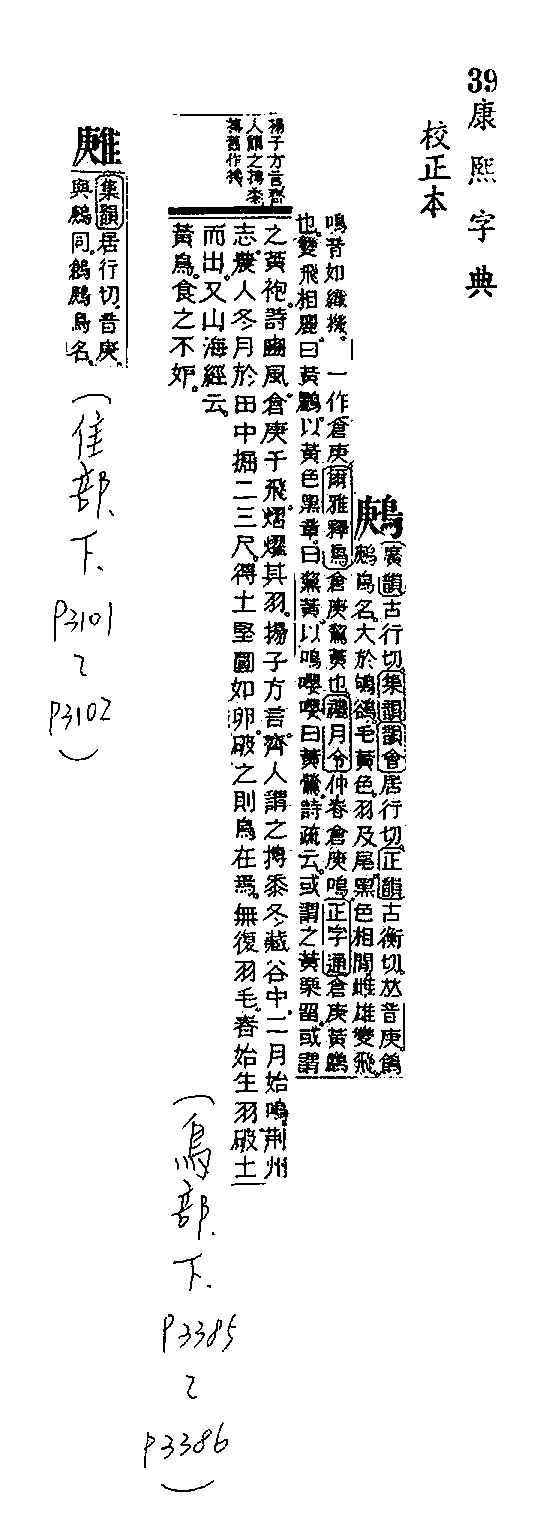 39 康熙字典
校正本
鶊
廣韻古行切集韻韻會居行切正韻古衡切𠀤音庚鶬
鶊鳥名。大於鴝鵒毛黃色。羽及尾黑色相閒。雌雄雙飛。
鳴音如織機。一作倉庚爾雅釋鳥倉庚鵹黃也。禮月令仲春倉庚鳴。正字通倉庚黃鸝
也。雙飛相麗。曰黃鸝。以黃色黑章。曰黧黃。以鳴嚶嚶曰黃鶯。詩疏云。或謂之黃栗留。或謂
之黃袍。詩豳風倉庚于飛。熠燿其羽。揚子方言。齊人謂之摶黍。冬藏谷中。二月始鳴。荊州
志。農人冬月於田中掘二三尺。得土堅圓如卵。破之則鳥在焉。無復羽毛。春始生羽。破土
而出。又山海經云。
黃鳥。食之不妒。
揚子方言齊
人謂之摶黍。
摶舊作搏。
(鳥部下. P3385~P3386)
集韻居行切。音庚。
與鶊同。鶬鶊鳥名。
(隹部下. P3101~P3102)